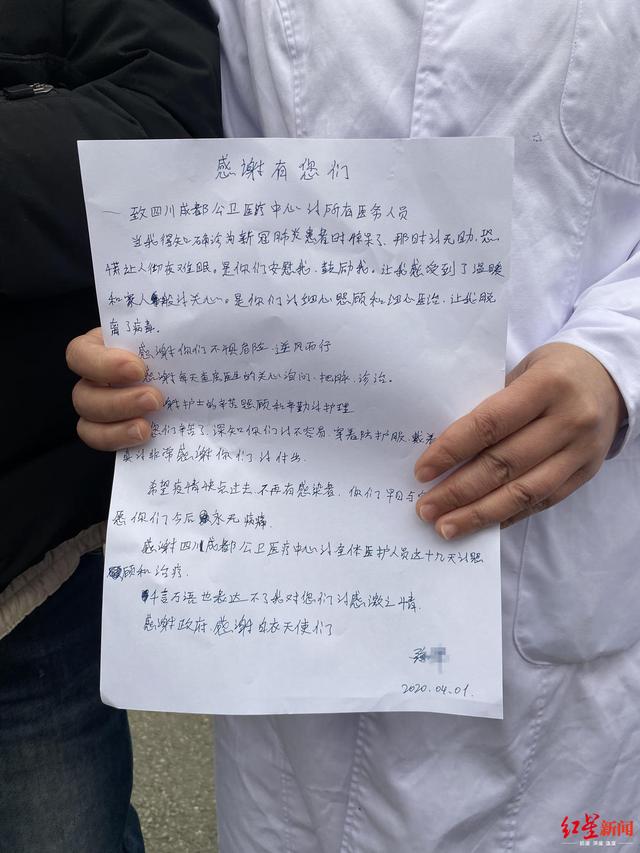 感谢有您们
致四川成都公卫医疗中心讠所有医务人员
当我得知确诊为新冠肺炎患者时惊呆了，那时讠无助、恐
慌让人彻夜难眠。是你们安慰我，鼓励我。让我感受到了温暖
和家人般讠关心。是你们讠细心照顾和细心医治，让我脱
离了病毒。
感谢你们不惧危险，逆风而行
感谢每天查房医生的关心询问、把脉、诊治。
护士的辛苦照顾和辛勤讠护理
您们辛苦了，深知你们讠不容易，穿着防护服，戴着
真讠非常感谢你们讠付出。
希望疫情快点过去，不再有感染者，你们早日与
愿你们今后永无病痛
感谢四川成都公卫医疗中心讠全体医护人员这十九天讠照
顾和治疗。
千言万语也表达不了我对您们讠感激之情。
感谢政府，感谢白衣天使们
2020.04.01
红星新闻